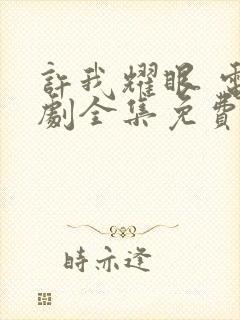 許我耀眼 電
劇全集免費
時亦逢